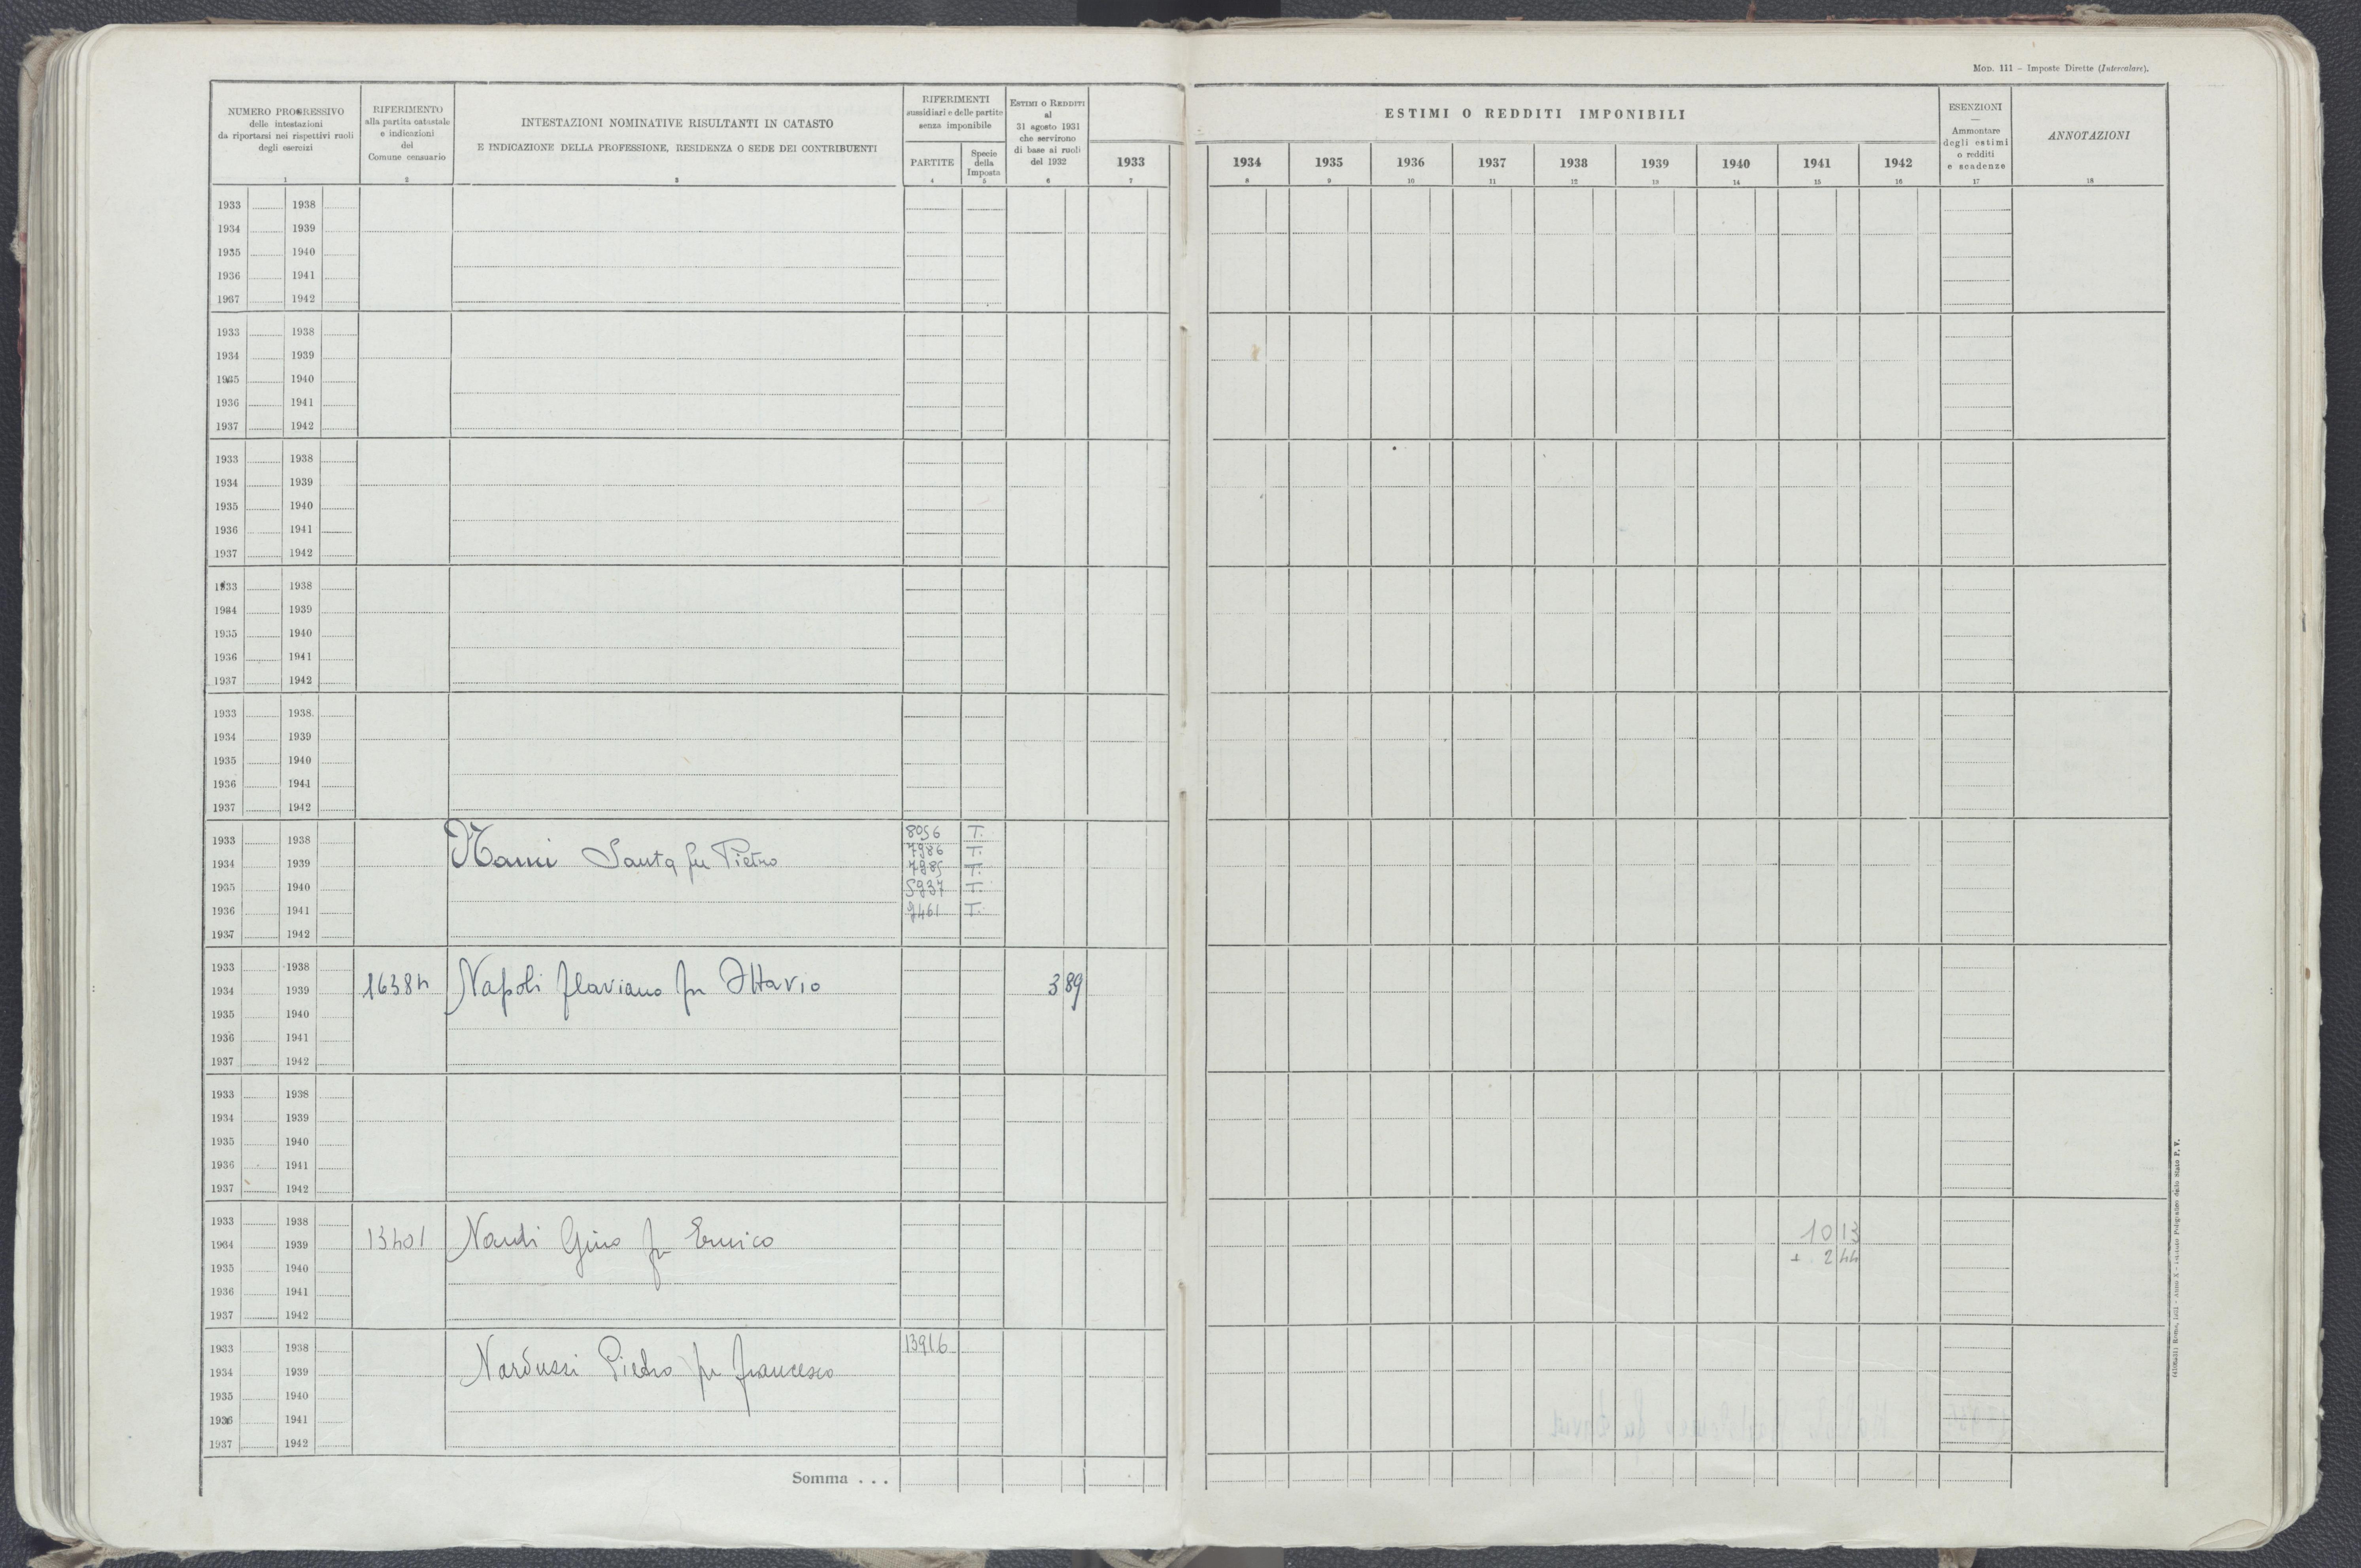 MOD. 111 – Imposte Dirette (Intercalare).
NUMERO PROGRESSIVO
delle intestazioni
da riportarsi nei rispettivi ruoli
degli esercizi
1
RIFERIMENTO
alla partita catastale
e indicazioni
del
Comune censuario
2
INTESTAZIONI NOMINATIVE RISULTANTI IN CATASTO
E INDICAZIONE DELLA PROFESSIONE, RESIDENZA O SEDE DEI CONTRIBUENTI
3
RIFERIMENTI
sussidiari e delle partite
senza imponibile
PARTITE
4
Specie
della
Imposta
5
ESTIMI O REDDITI
al
31 agosto 1931
che servirono
di base ai ruoli
del 1932
6
ESTIMI O REDDITI IMPONIBILI
1933 1934 1935 1936 1937 1938 1939 1940 1941 1942
7 8 9 10 11 12 13 14 15 16
ESENZIONI
—
Ammontare
degli estimi
o redditi
e scadenze
17
ANNOTAZIONI
18
1933 1938
1934 1939
1935 1940
1936 1941
1937 1942
1933 1938
1934 1939
1935 1940
1936 1941
1937 1942
1933 1938
1934 1939
1935 1940
1936 1941
1937 1942
1933 1938
1934 1939
1935 1940
1936 1941
1937 1942
1933 1938
1934 1939
1935 1940
1936 1941
1937 1942
1933 1938 8056 T.
Nanni Santa fu Pietro 7986 T.
1934 1939 7985 T.
1935 1940 5937 T.
1936 1941 9461 T.
1937 1942
1933 1938
1934 1939 16384 Napoli Flaviano fu Ottavio 3 89
1935 1940
1936 1941
1937 1942
1933 1938
1934 1939
1935 1940
1936 1941
1937 1942
1933 1938
1934 1939 13401 Nardi Gino fu Enrico 10 13
1935 1940 + 2 44
1936 1941
1937 1942
1933 1938 13916
1934 1939 Narduzzi Pietro fu Francesco
1935 1940
1936 1941
1937 1942
Somma . . .